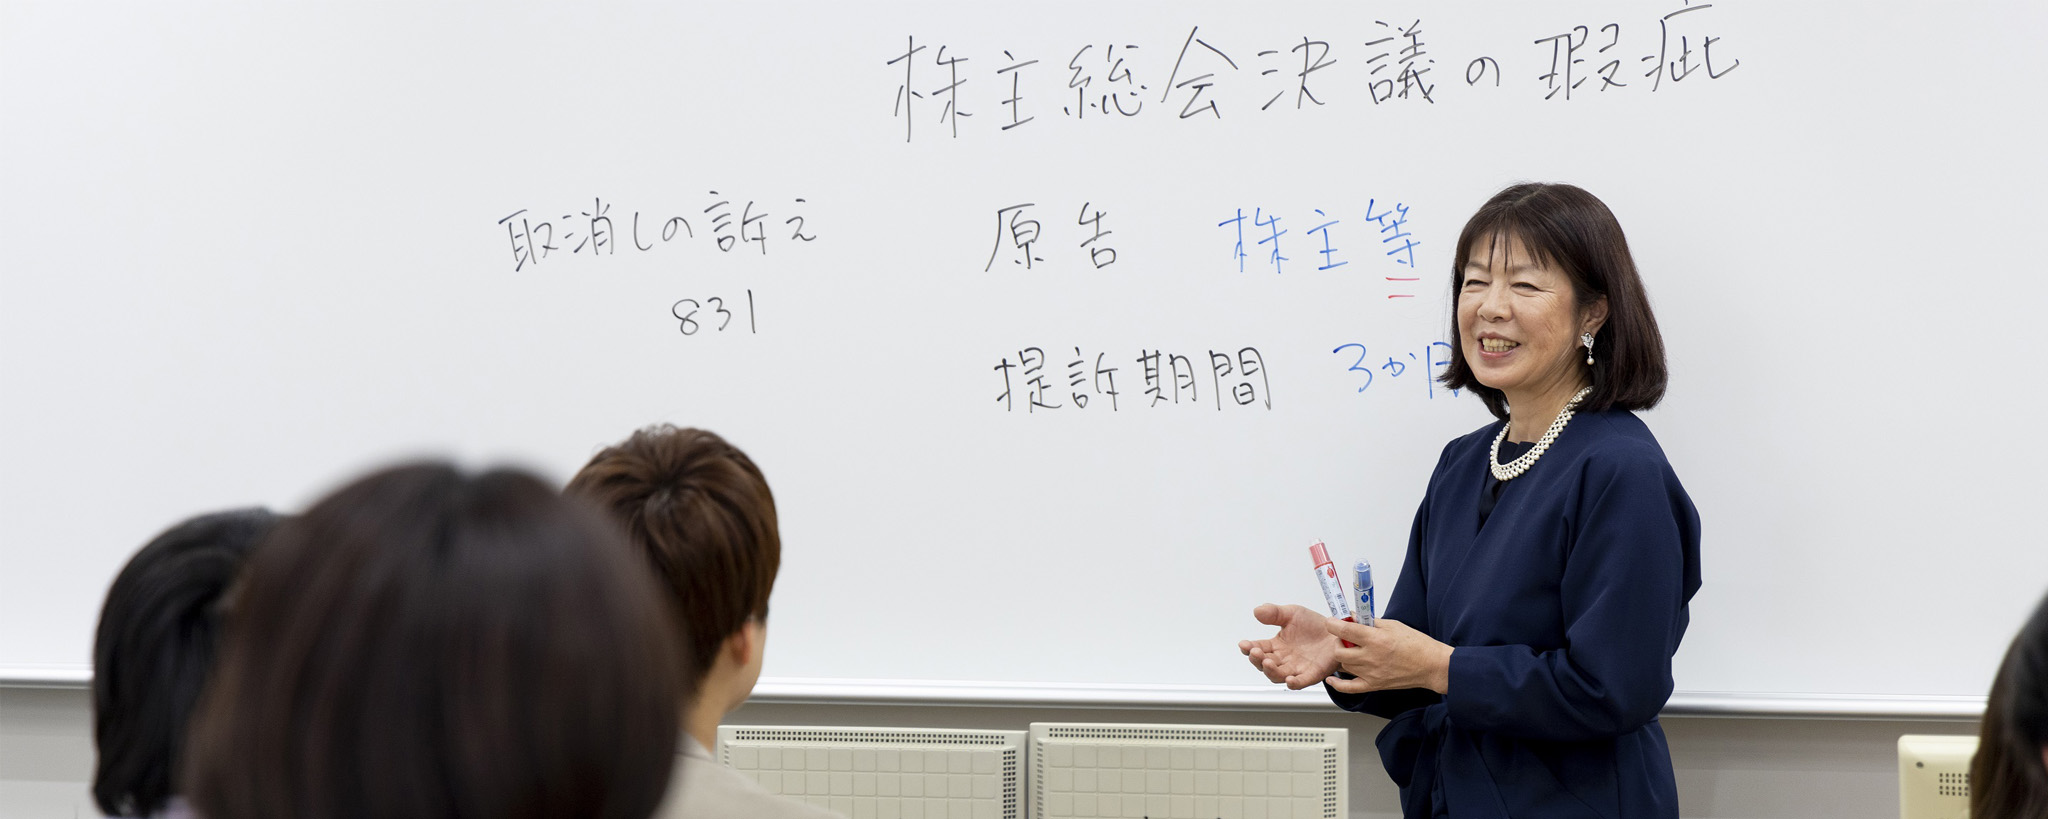 株主総会決議の瑕疵
取消しの訴え 原告 株主等
831
提訴期間 3か月